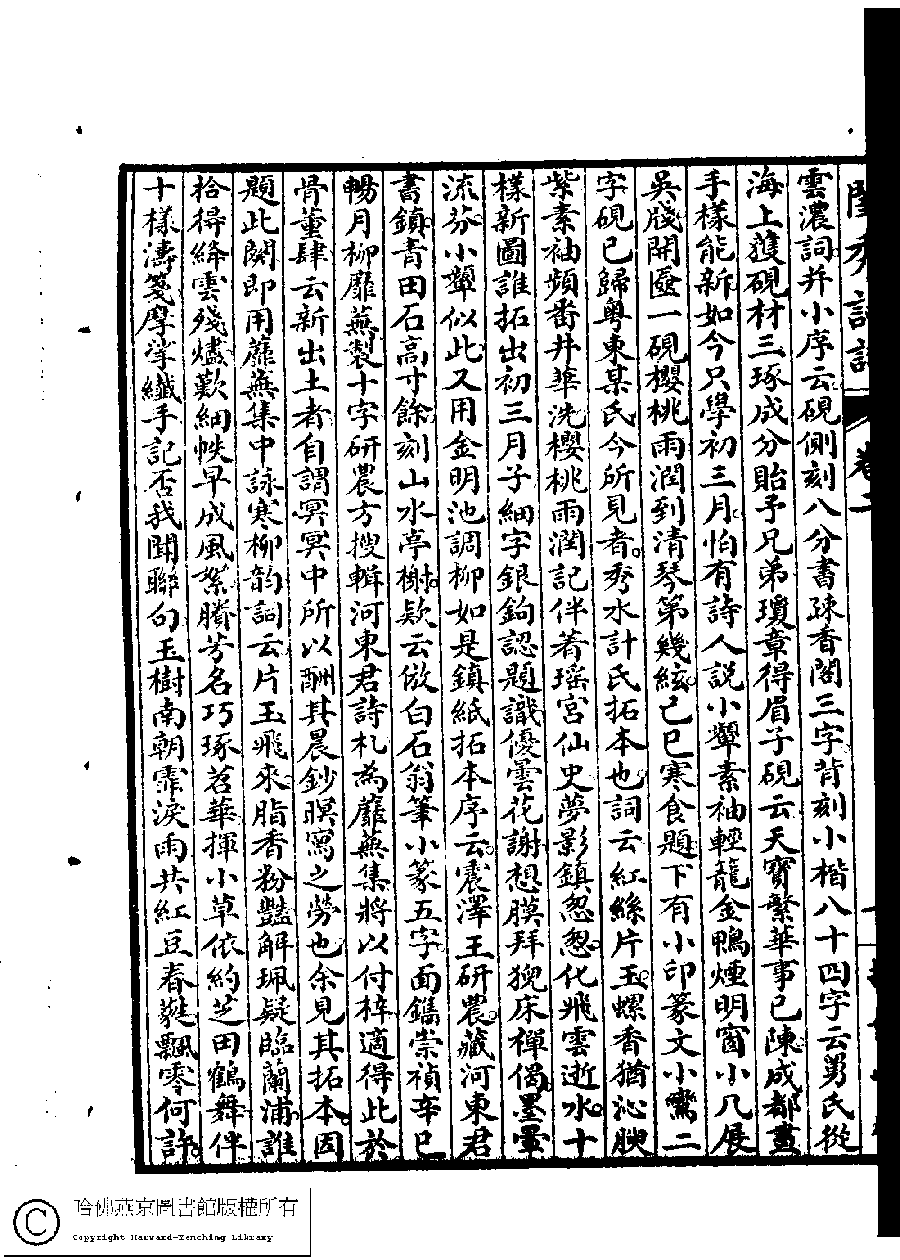 閨秀詩話 卷二
雲濃詞并小序云硯側刻八分書疎香閣三字背刻小楷八十四字云舅氏從
海上獲硯材三琢成分貽予兄弟瓊章得眉子硯云天寶繁華事已陳成都畫
手樣能新如今只學初三月怕有詩人說小顰素袖輕籠金鴨煙明窗小几展
吳牋開匳一硯櫻桃雨潤到清琴第幾絃己巳寒食題下有小印篆文小鸞二
字硯已歸粵東某氏今所見者秀水計氏拓本也詞云紅絲片玉螺香猶沁腴
紫素袖頻番井華洗櫻桃雨潤記伴著瑤宮仙史夢影鎮怱怱化飛雲逝水十
樣新圖誰拓出初三月子細字銀鉤認題識優曇花謝想膜拜猊床禪偈墨暈
流芬小顰似此又用金明池調柳如是鎮紙拓本序云震澤王研農藏河東君
書鎮青田石高寸餘刻山水亭榭款云倣白石翁筆小篆五字面鐫崇禎辛巳
暢月柳靡蕪製十字研農方搜輯河東君詩札為蘼蕪集將以付梓適得此於
骨董肆云新出土者自謂冥冥中所以酬其晨鈔暝寫之勞也余見其拓本因
題此闋即用蘼蕪集中詠寒柳韵詞云片玉飛來脂香粉豔解珮疑臨蘭浦誰
拾得絳雲殘燼歎細帙早成風絮賸芳名巧琢茗華揮小草依約芝田鶴舞伴
十樣濤箋摩挲纖手記否我聞聯句玉樹南朝霏淚雨共紅豆春蕤飄零何許
哈佛燕京圖書館版權所有
Copyright Harvard-Yenching Library